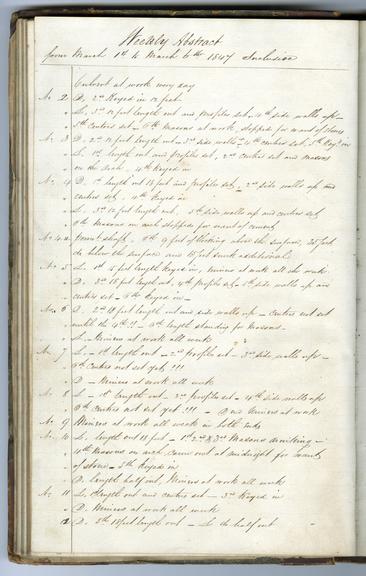 Weekly Abstract
from March 1st to March 6th 1847 Inclusive
at work every day
No. 2 D. 2nd Keyed in 12 feet
" L. 3rd 12 feet length out and profiles set, 4th side walls up
5th centres set - 6th Masons at work, stopped for want of stones
No. 3 D. 2nd 12 feet length out - 3rd side walls - 4th centres set, 5th Keyed in
" L. 1st length out and profiles set, 2nd centres set and masons
on the arch, 4th Keyed in
No. 4 D. 1st length 15 feet and profiles set, 2nd side walls up and
centres set, 4th Keyed in
" L. 3rd 12 feet length out, 5th side walls up and centres set
6th Masons on arch stopped for want of cement
No. 4a shaft, 9 feet of blocking above the surface, 25 feet
do below the surface and 15 feet sunk additional
No. 5 L. 1st length Keyed in, miners at work all the week
" D. 3rd 15 feet length out, 4th profiles set, 5th side walls up and
centres set - 6th Keyed in
No. 6 D. 2nd 15 feet length out and side walls up - centres not set
until the 4th !! - 6th length standing for Masons
" L. Miners at work all week
No. 7 L. - 1st length out - 2nd profiles set - 3rd side walls up -
5th Centres not set yet !!!
" D - Miners at work all week
No. 8 L - 1st length out - 2nd profiles set - 4th side walls up
5th Centres not set yet !!! - D no Miners at work
No. 9 Miners at work all week in both ends
No. 10 L. length out 15 feet - 1st 2nd & 3rd Masons drinking -
4th Masons on arch came out at midnight for want
of stone - 5th Keyed in
" D. length half out, Miners at work all week
No. 11 L. length out and centres set - 3rd Keyed in
" D. Miners at work all week
12 D. 5th 15 feet length out - L. do half out